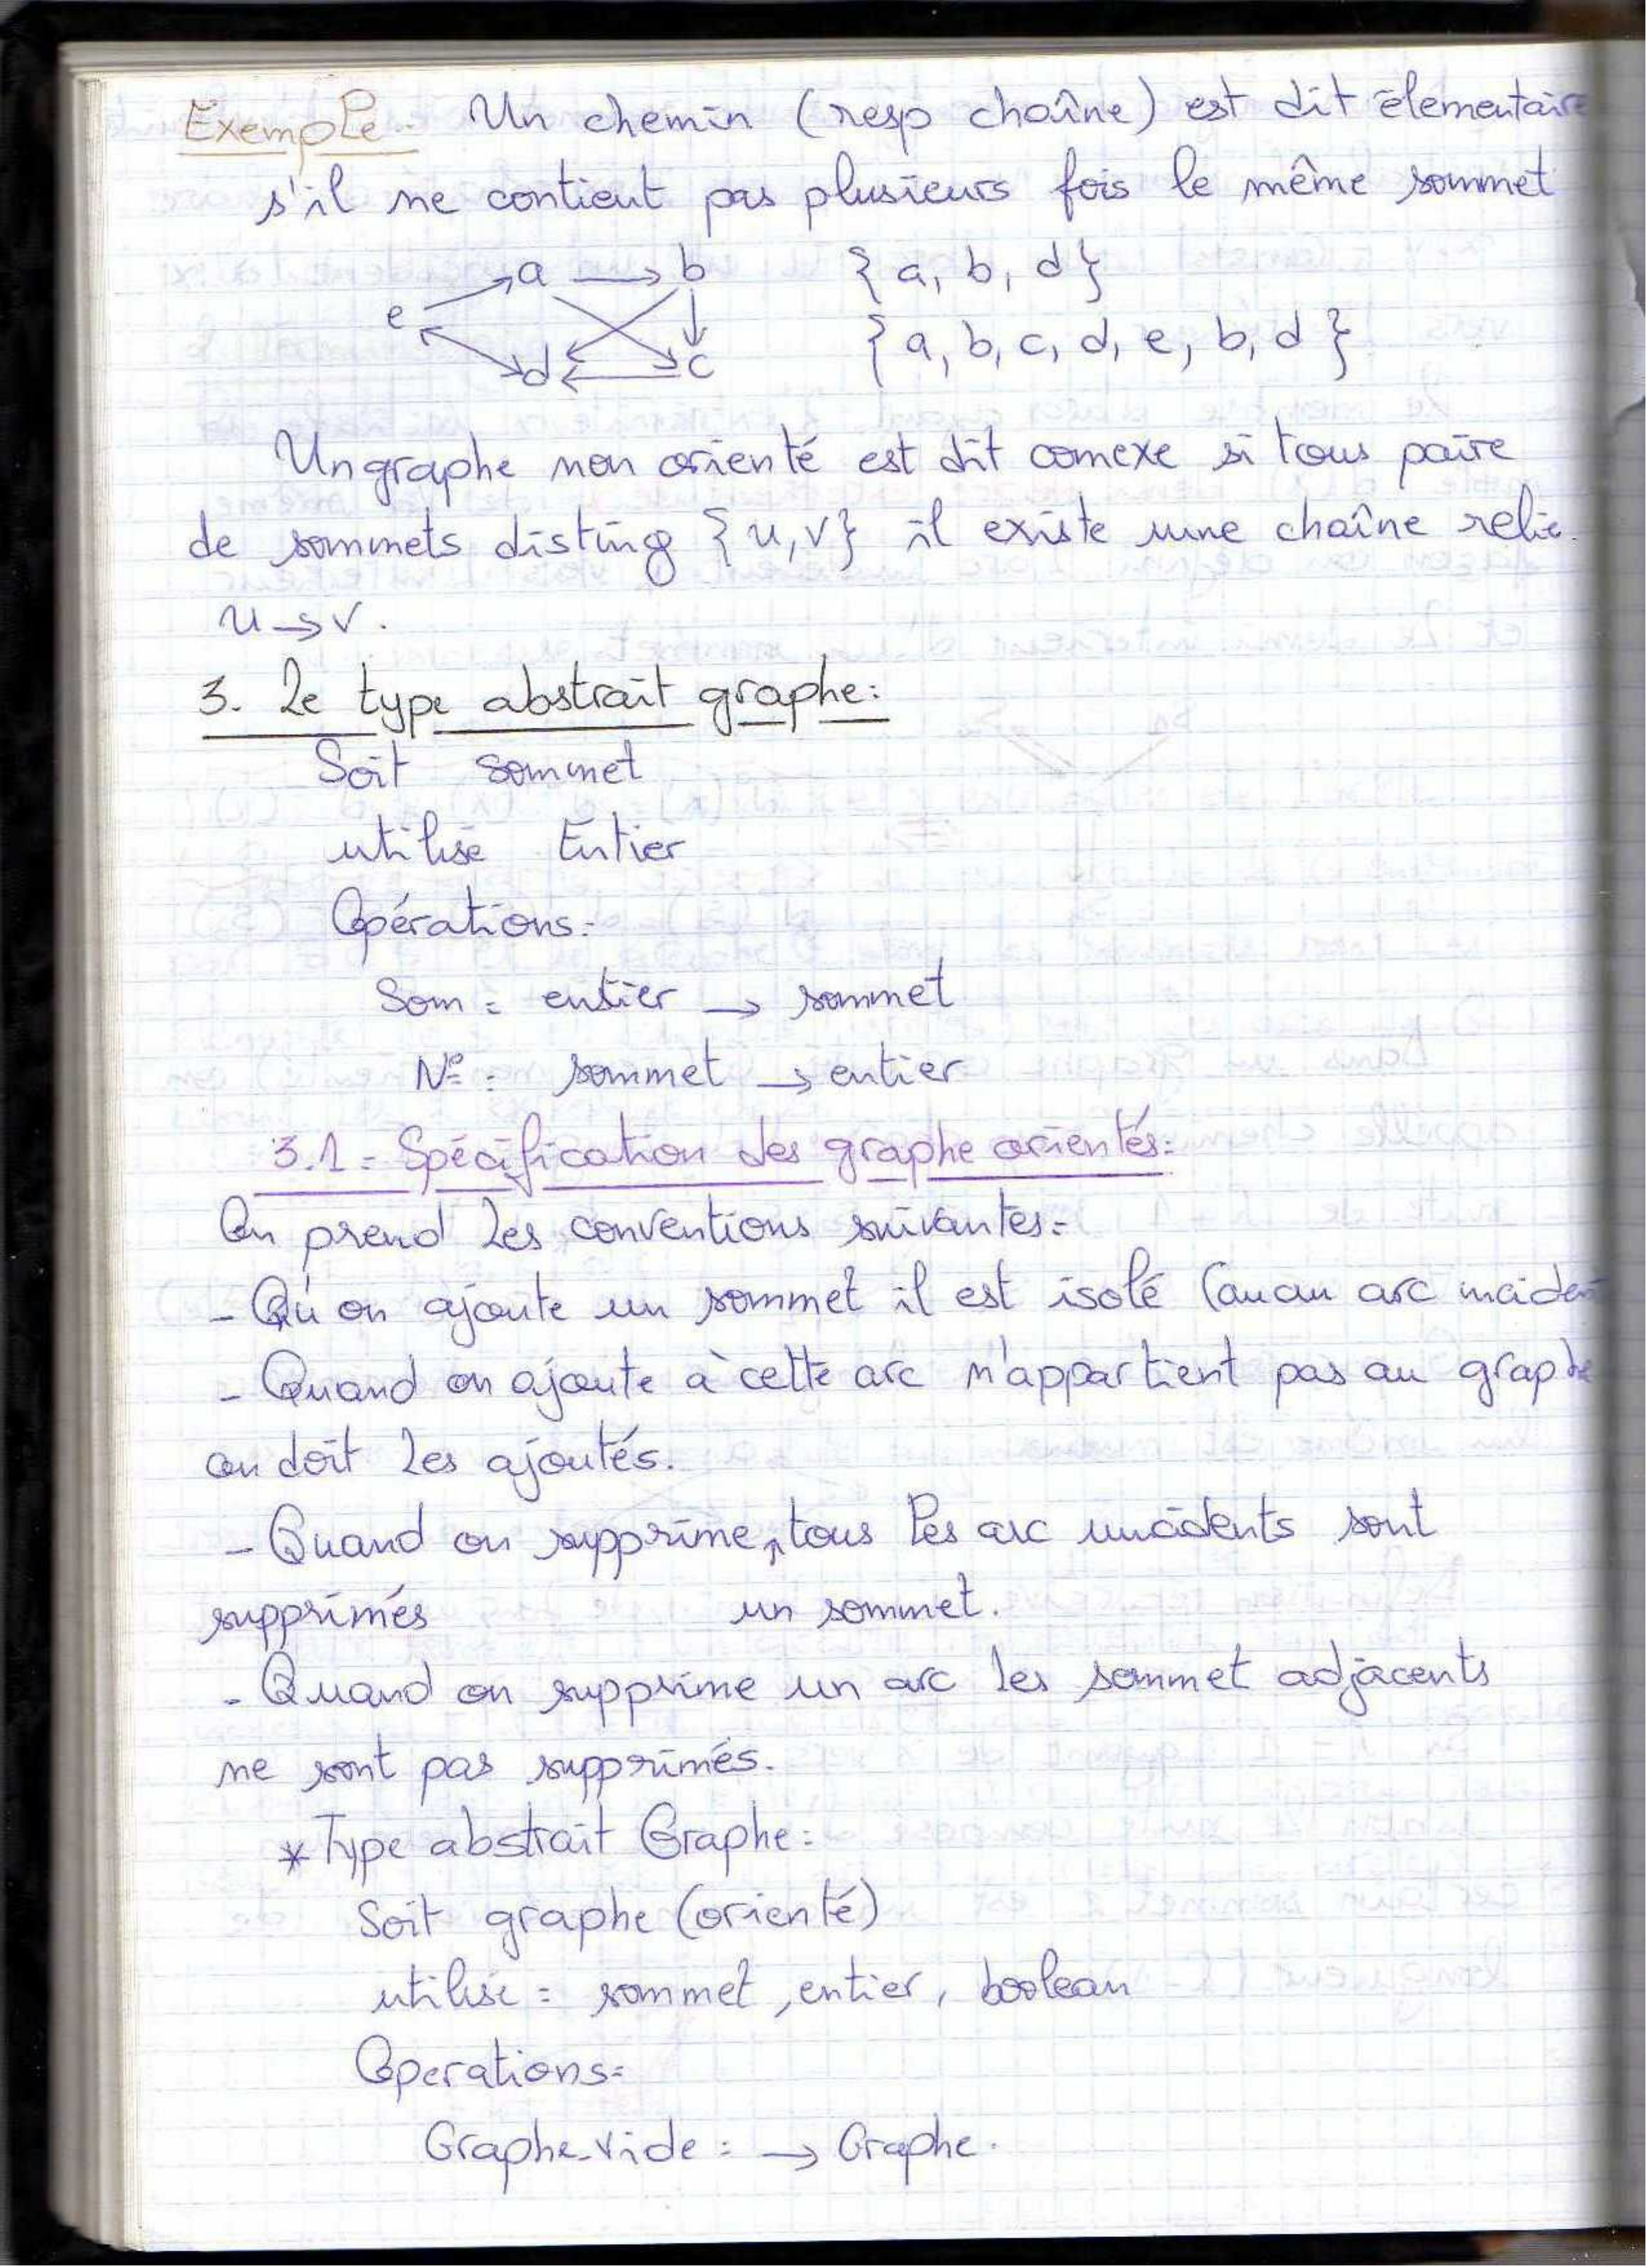 Exemple: Un chemin (resp chaîne) est dit élementaire
s'il ne contient pas plusieurs fois le même sommet
a b {a, b, d}
e {a, b, c, d, e, b, d}
d c
Un graphe non orienté est dit connexe si tous paire
de sommets disting {u,v} il existe une chaîne relie
u → v.
3. Le type abstrait graphe:
Soit sommet
utilise Entier
Opérations:
Som: entier → sommet
N°: sommet → entier
3.1- Spécification des graphe orientés:
On prend les conventions suivantes:
- Qu'on ajoute un sommet il est isolé (aucun arc
- Quand on ajoute à cette arc n'appartient pas au graphe
on doit les ajoutés.
- Quand on supprime, tous les arc incidents sont
supprimés un sommet.
- Quand on supprime un arc les sommet adjacents
ne sont pas supprimés.
* Type abstrait Graphe:
Soit graphe (orienté)
utilise: sommet, entier, boolean
Operations:
Graphe-vide: → Graphe.